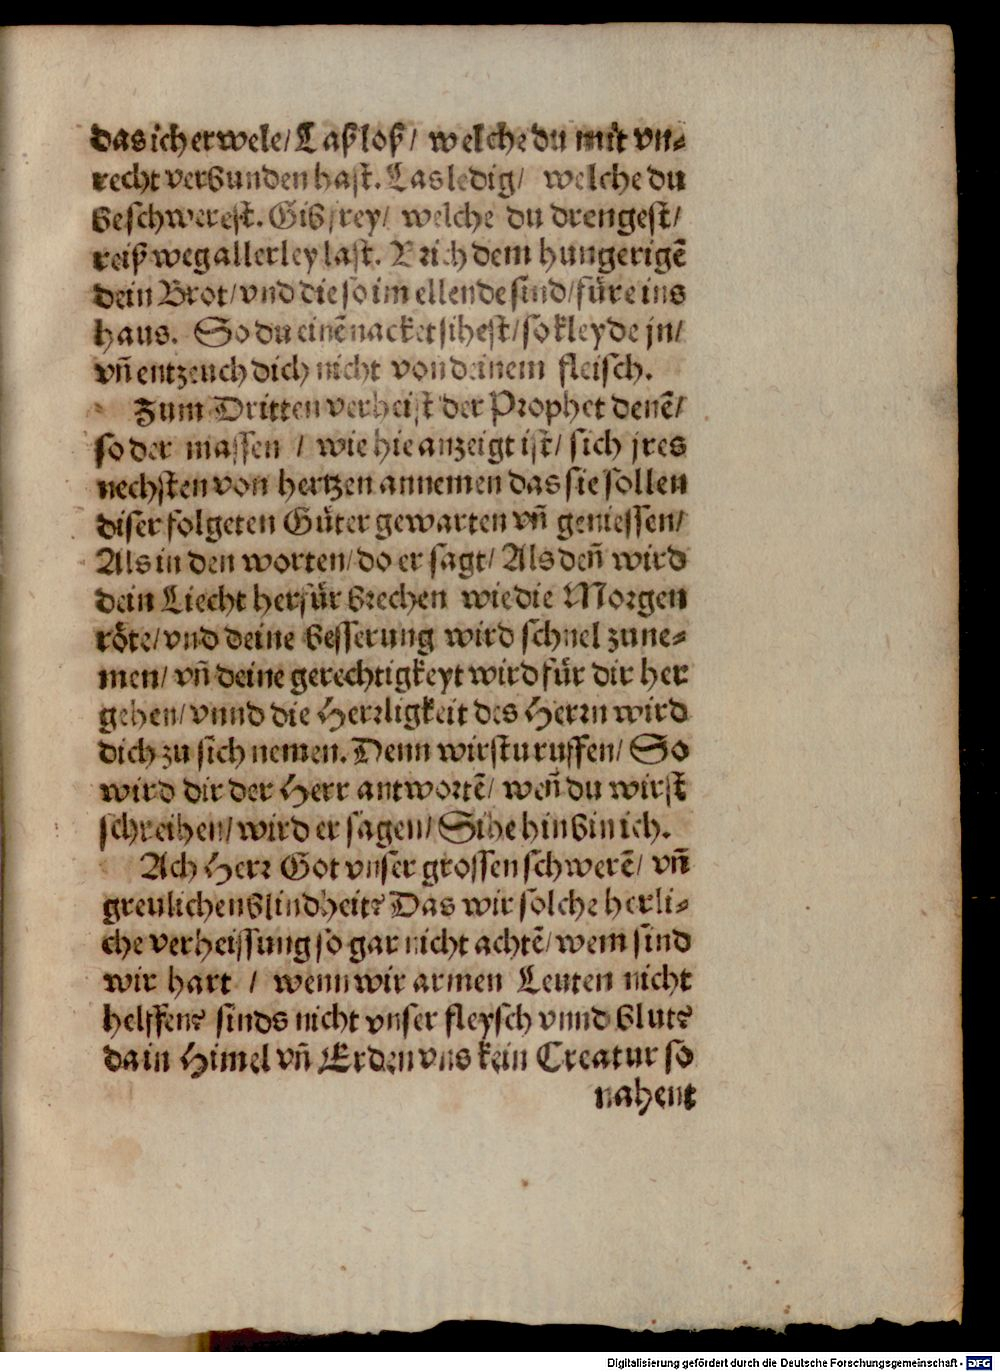 das ich erwele/ Laß loß/ welche du mit vn⸗
recht verbunden hast. Las ledig/ welche du
beschwerest. Gib frey/ welche du drengest/
reiß weg allerley last. Brich dem hungerigē
dein Brot/ vnd die so im ellende sind/ füre ins
haus. So du einē nacket sihest/ so kleyde jn/
vn̄ entzeuch dich nicht von deinem fleisch.
Zum Dritten verheist der Prophet denē/
so der massen / wie hie anzeigt ist/ sich jres
nechsten von hertzen annemen das sie sollen
diser folgeten Güter gewarten vn̄ geniessen/
Als in den worten/ do er sagt/ Als den̄ wird
dein Liecht herfür brechen wie die Morgen
röte/ vnd deine besserung wird schnel zune⸗
men/ vn̄ deine gerechtigkeyt wird für dir her
gehen/ vnnd die Herrligkeit des Herrn wird
dich zu sich nemen. Denn wirstu ruffen/ So
wird dir der Herr antwortē/ wen̄ du wirst
schreihen/ wird er sagen/ Sihe hin bin ich.
Ach Herr Got vnser grossen schwerē/ vn̄
greulichen blindheit? Das wir solche herli⸗
che verheissung so gar nicht achtē/ wem sind
wir hart / wenn wir armen Leuten nicht
helffen? sinds nicht vnser fleysch vnnd blut?
da in Himel vn̄ Erden vns kein Creatur so
nahent
Digitalisierung gefördert durch die Deutsche Forschungsgemeinschaft - DFG